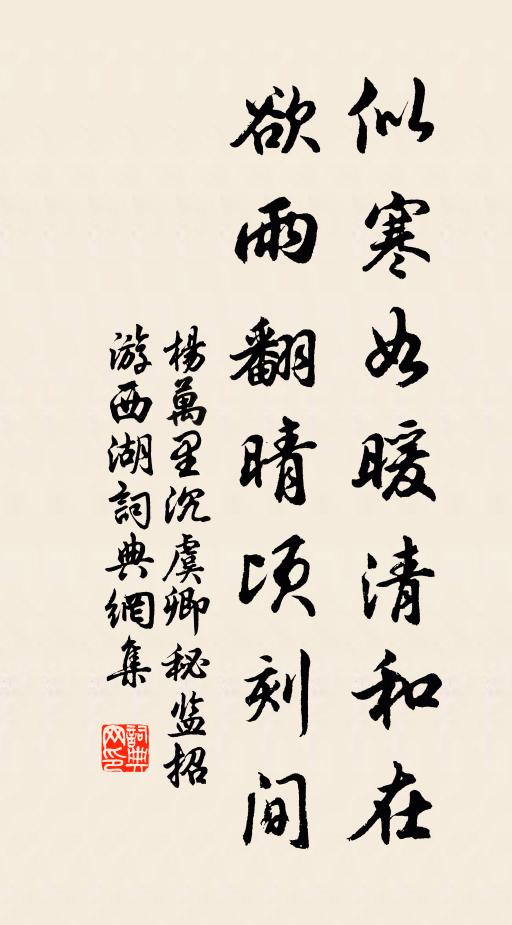 似寒如暖清和在
欲雨翻晴頃刻間
楊萬里沉虞卿秘监招
游西湖詞典網集
詞典
网印